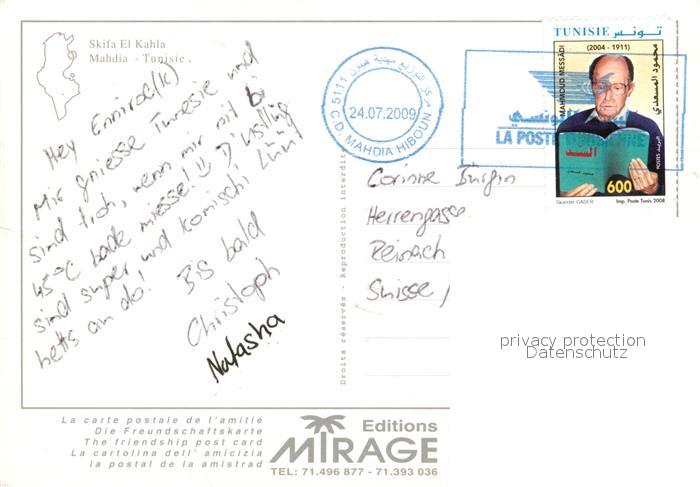 Skifa El Kahla
Mahdia - Tunisie .
Hey Ennirae(lk)
Mir gniesse Tunesie und
sind froh, wenn mir nid bi
45°C bade miesse! :) D'
sind super und komischi Lüüt
hetts au do! Bis bald
Christoph
Natasha
Droits réservés - Reproduction interdite
5111 مركز التوزيع مهدية هيبون
24.07.2009
C.D. MAHDIA HIBOUN
البريد التونسي
LA POSTE TUNISIENNE
TUNISIE تونس
(2004 - 1911)
MAHMOUD MESSÂDI
محمود المسعدي
السد
600
POSTES البريد
Skander GADER
Imp. Poste Tunis 2008
Corinne Bürgin
Herrengasse
Reinach
Suisse /
privacy protection
Datenschutz
La carte postale de l'amitié
Die Freundschaftskarte
The friendship post card
La cartolina dell' amicizia
la postal de la amistrad
Editions
MIRAGE
TEL: 71.496 877 - 71.393 036